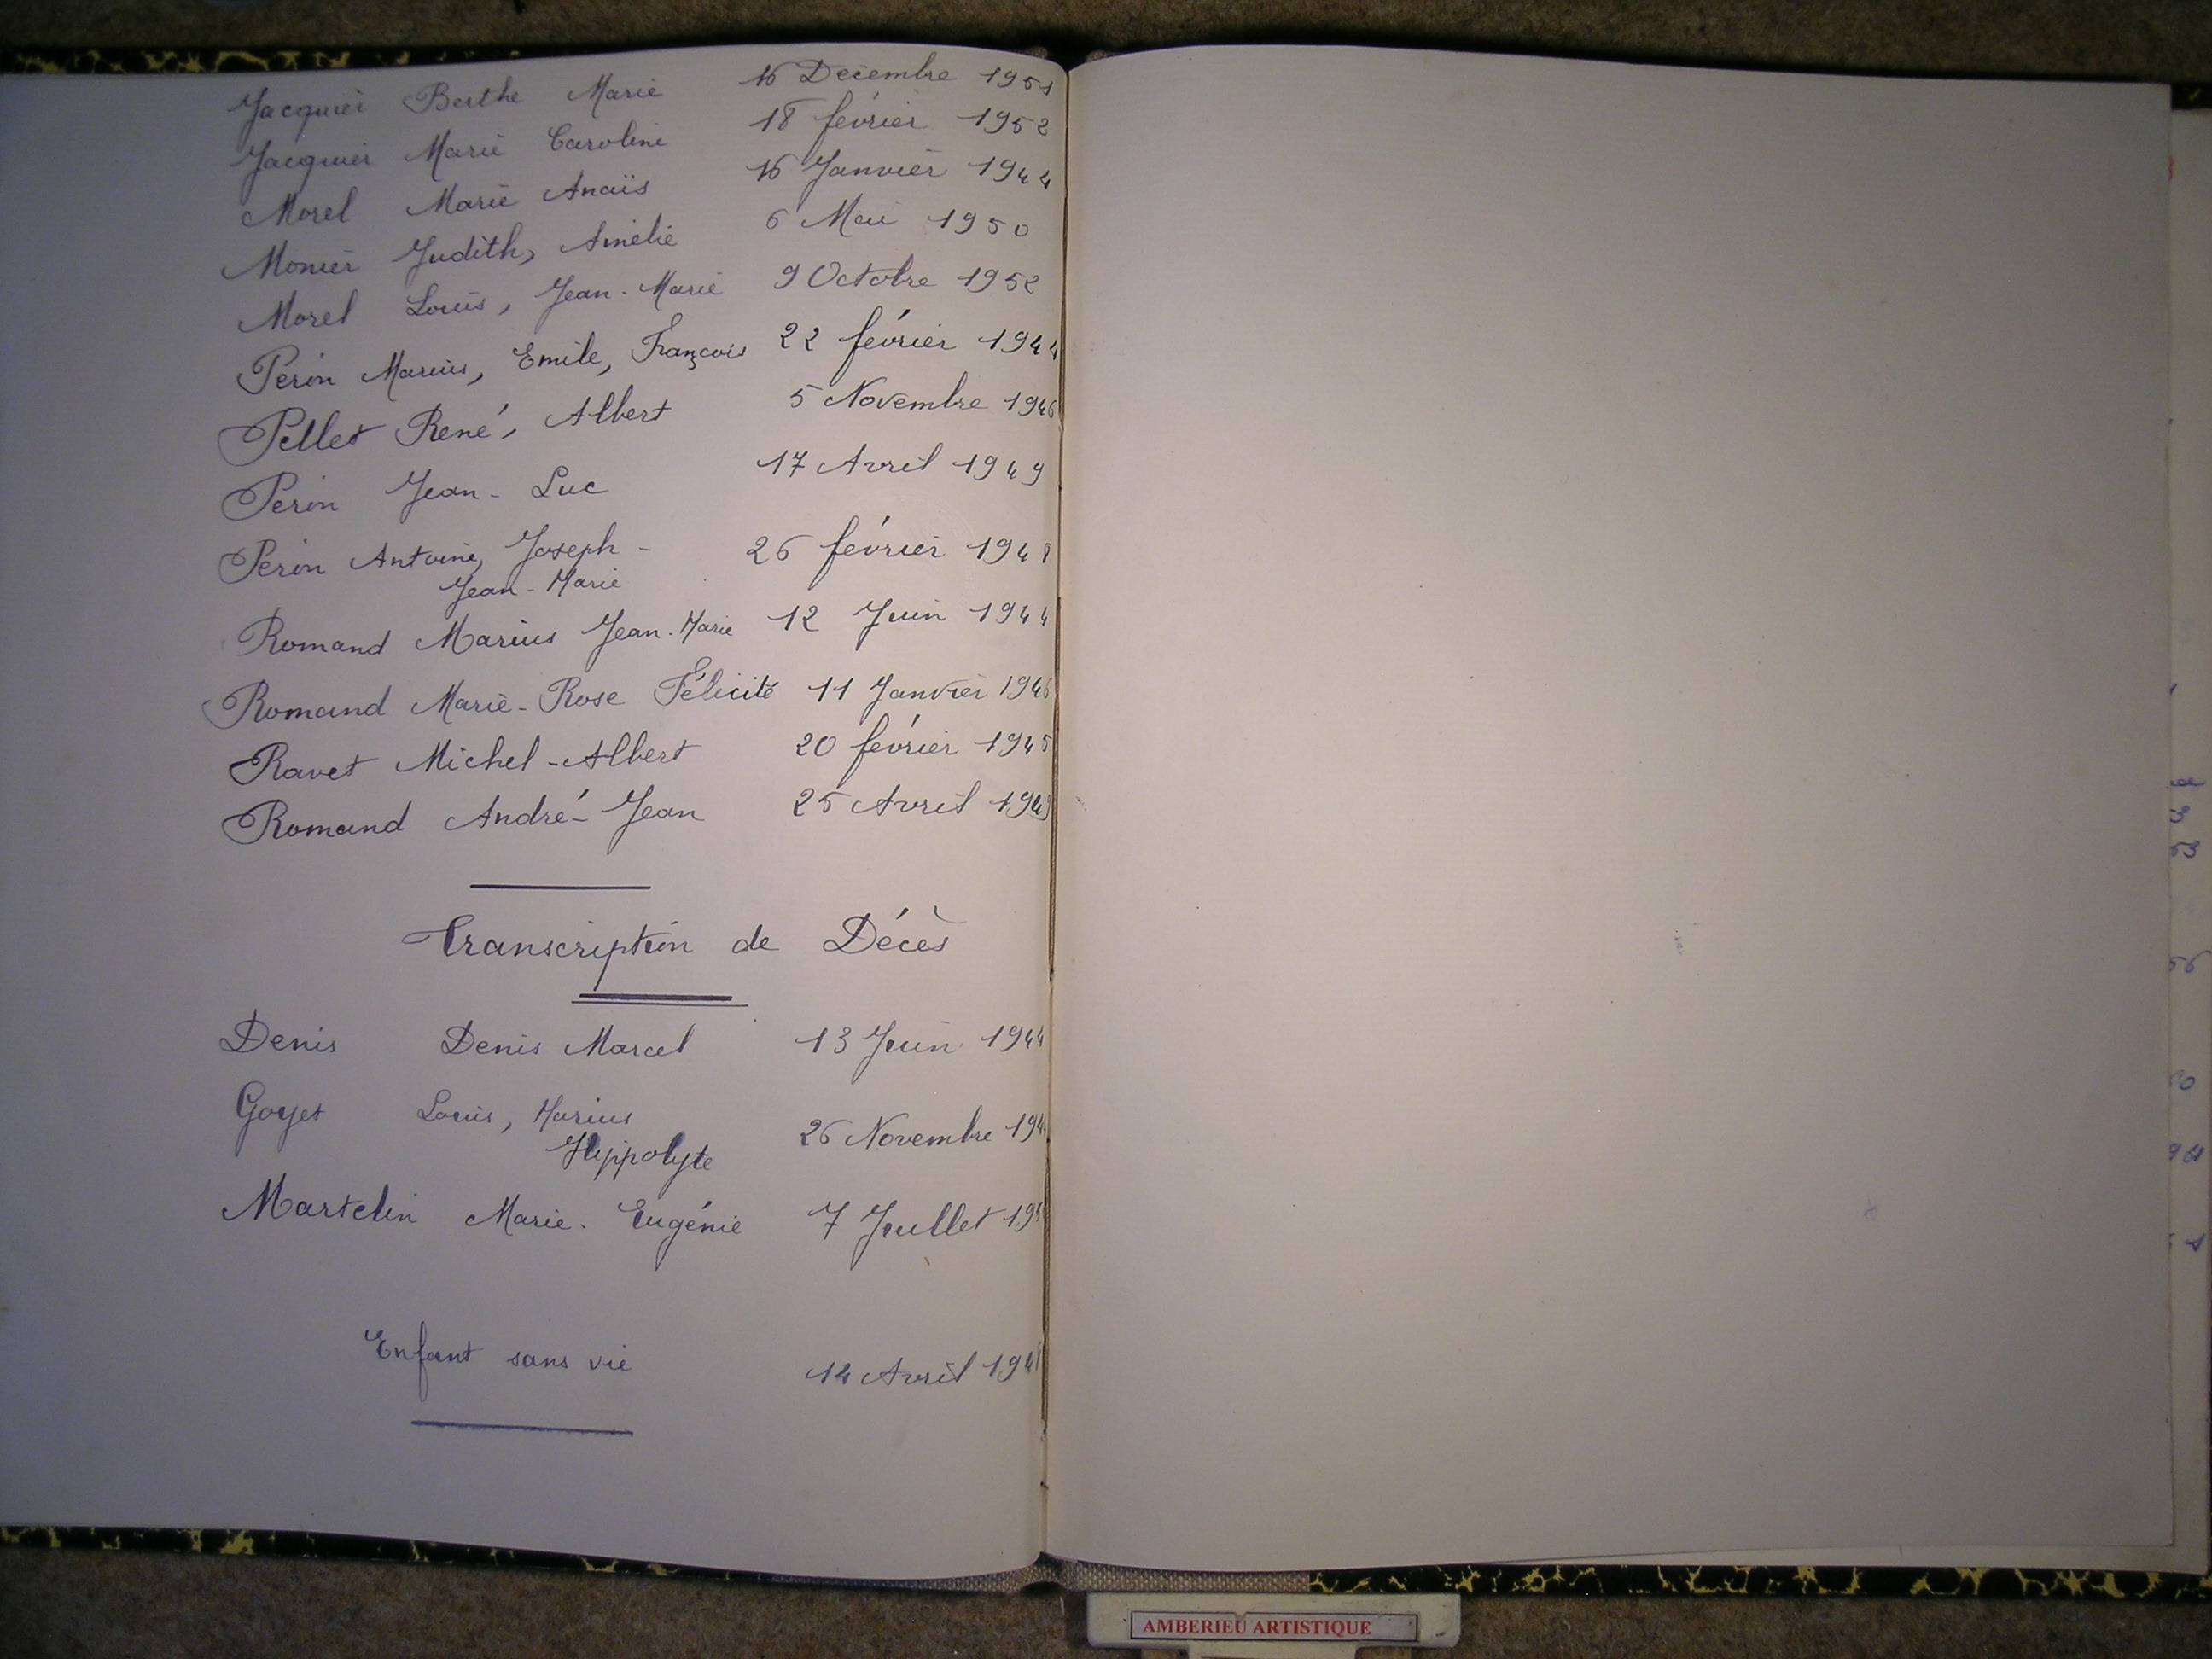 Jacquier Berthe Marie 16 Décembre 1951
Jacquier Marie Caroline 18 février 1952
Morel Marie Anaïs 16 Janvier 1944
Monier Judith, Amélie 6 Mai 1950
Morel Louis, Jean-Marie 9 Octobre 1952
Perin Marius, Emile, François 22 février 1944
Pellet René, Albert 5 Novembre 1946
Perin Jean-Luc 17 Avril 1949
Perin Antoine, Joseph - 26 février 1948
Jean-Marie
Romand Marius Jean-Marie 12 Juin 1944
Romand Marie-Rose Félicité 11 Janvier 1946
Ravet Michel-Albert 20 février 1945
Romand André-Jean 25 Avril 1943
Transcription de Décès
Denis Denis Marcel 13 Juin 1944
Goyet Louis, Marius 26 Novembre
Hippolyte
Martelin Marie-Eugénie 7 Juillet
Enfant sans vie 14 Avril
AMBERIEU ARTISTIQUE